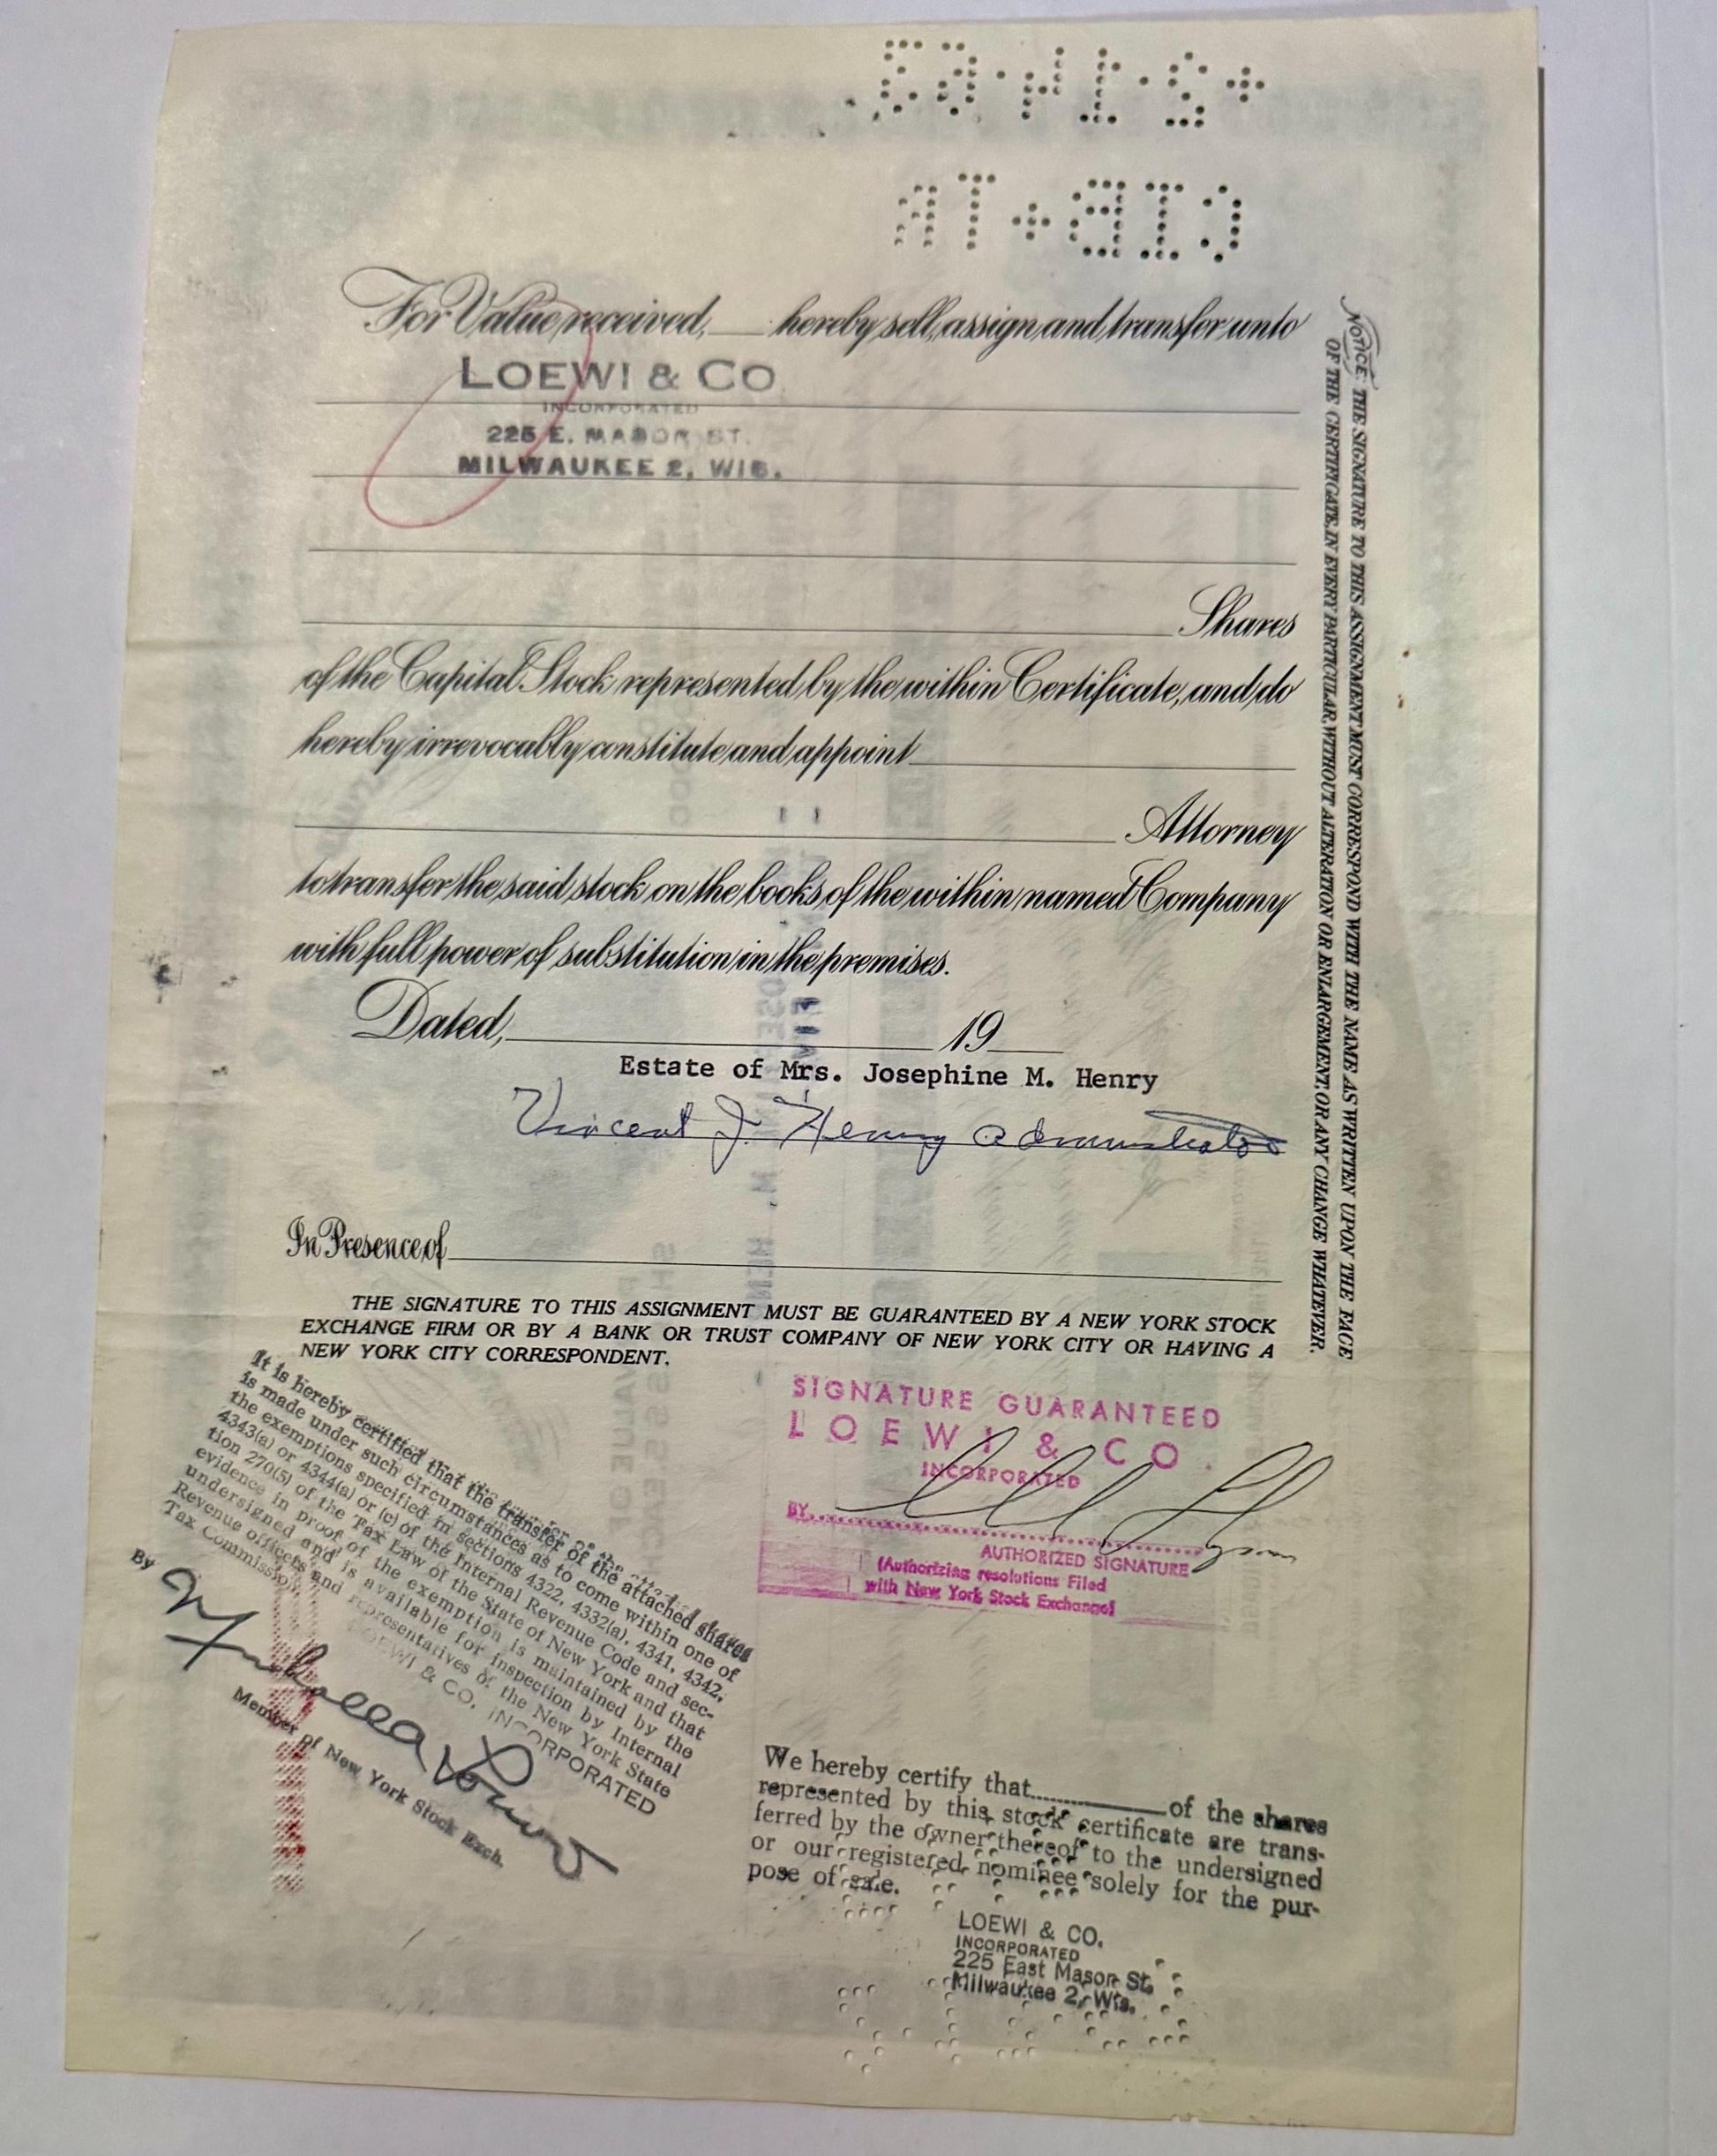 For Value received, hereby sell, assign and transfer unto
LOEWI & CO
INCORPORATED
225 E. MASON ST.
MILWAUKEE 2, WIS.
Shares
of the Capital Stock represented by the within Certificate, and do
hereby irrevocably constitute and appoint
Attorney
to transfer the said stock on the books of the within named Company
with full power of substitution in the premises.
Dated, 19
Estate of Mrs. Josephine M. Henry
Vincent J. Henry administrator
In Presence of
THE SIGNATURE TO THIS ASSIGNMENT MUST BE GUARANTEED BY A NEW YORK STOCK
EXCHANGE FIRM OR BY A BANK OR TRUST COMPANY OF NEW YORK CITY OR HAVING A
NEW YORK CITY CORRESPONDENT.
NOTICE: THE SIGNATURE TO THIS ASSIGNMENT MUST CORRESPOND WITH THE NAME AS WRITTEN UPON THE FACE
OF THE CERTIFICATE, IN EVERY PARTICULAR, WITHOUT ALTERATION OR ENLARGEMENT, OR ANY CHANGE WHATEVER.
It is hereby certified that the transfer of the attached shares
is made under such circumstances as to come within one of
the exemptions specified in sections 4322, 4332(a), 4341, 4342,
4343(a) or 4344(a) or (c) of the Internal Revenue Code and sec-
tion 270(5) of the Tax Law of the State of New York and that
evidence in proof of the exemption is maintained by the
undersigned and is available for inspection by Internal
Revenue officers and representatives of the New York State
Tax Commission.
LOEWI & CO. INCORPORATED
By
Member of New York Stock Exch.
SIGNATURE GUARANTEED
LOEWI & CO.
INCORPORATED
BY
AUTHORIZED SIGNATURE
(Authorizing resolutions Filed
with New York Stock Exchange)
We hereby certify that of the shares
represented by this stock certificate are trans-
ferred by the owner thereof to the undersigned
or our registered nominee solely for the pur-
pose of sale.
LOEWI & CO.
INCORPORATED
225 East Mason St.
Milwaukee 2, Wis.